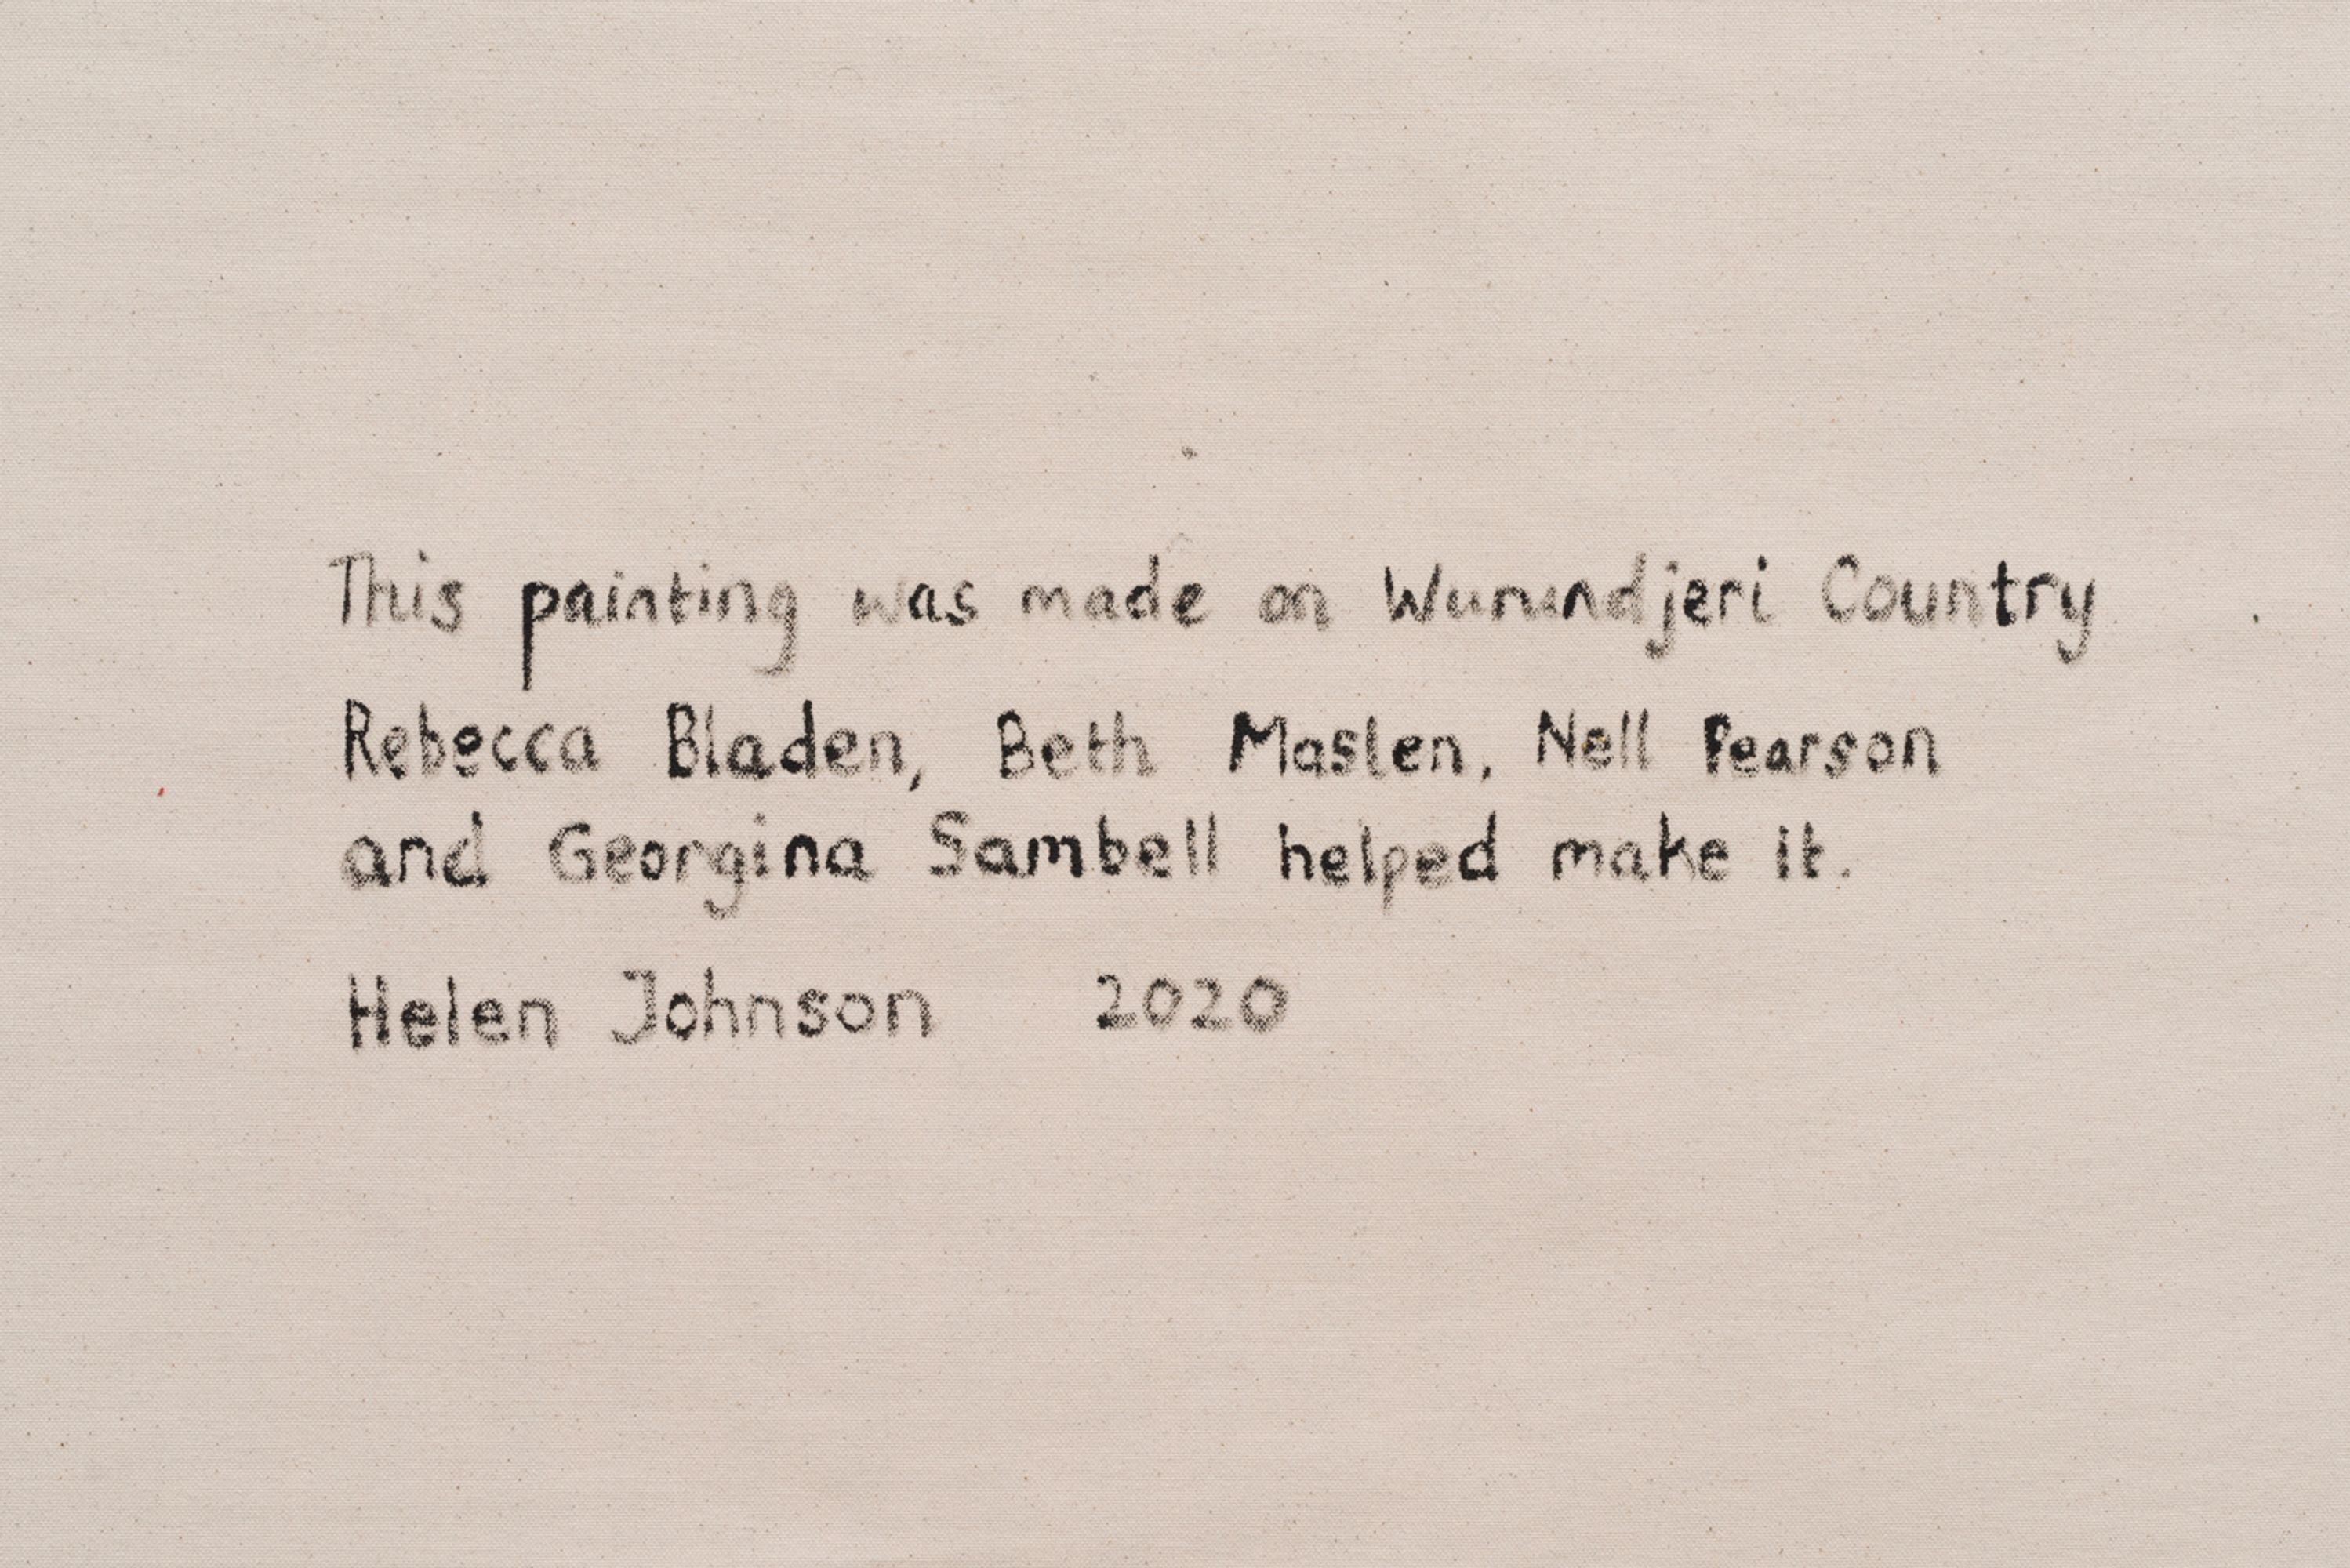 This painting was made on Wurundjeri Country
Rebecca Bladen, Beth Maslen, Nell Pearson
and Georgina Sambell helped make it.
Helen Johnson 2020